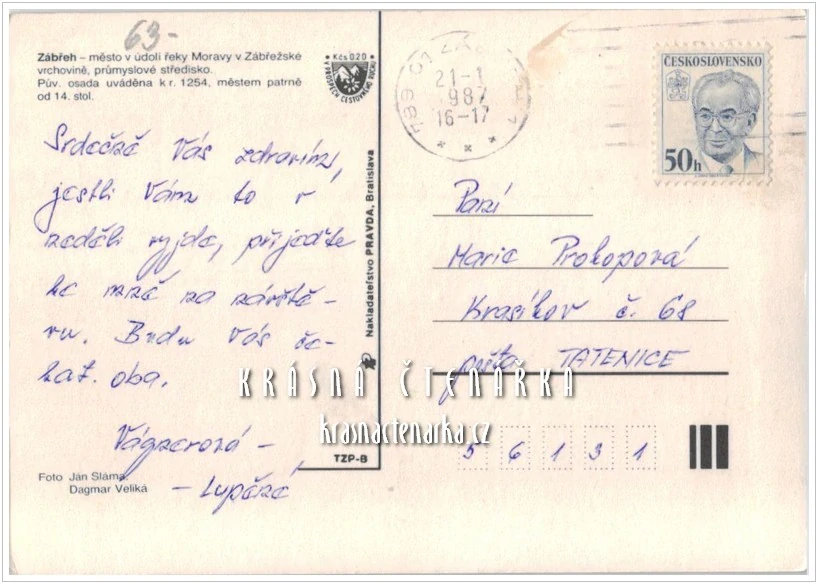 63-
Zábřeh – město v údolí řeky Moravy v Zábřežské
vrchovině, průmyslové středisko.
Pův. osada uváděna k r. 1254, městem patrně
od 14. stol.
Kčs 0,20
V PROSPĚCH CESTOVNÉHO RUCHU
Srdečně Vás zdravím,
jestli Vám to v
neděli vyjde, přijeďte
ke mně na návště-
vu. Budu Vás če-
kat. oba.
Vágnerová –
– Lupěné
Foto Ján Sláma,
Dagmar Veliká
Nakladateľstvo PRAVDA, Bratislava
TZP-8
789 01 ZÁ
21-1
1987
16-17
ČESKOSLOVENSKO
50h
Paní
Marie Prokopová
Krasíkov č. 68
pošta TATENICE
56131
KRÁSNÁ ČTENÁŘKA
krasnactenarka.cz